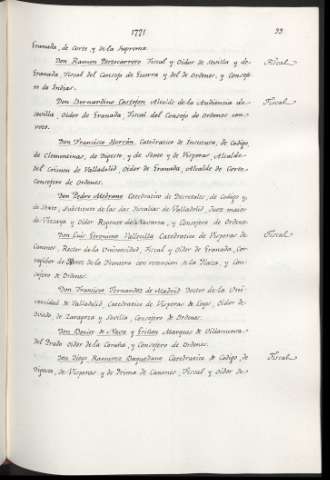 1771 33
Granada, de Corte y de la Suprema.
Don Ramon Portocarrero Fiscal y Oidor de Sevilla y de Fiscal
Granada, Fiscal del Consejo de Guerra y del de Ordenes, y Consejo
de Indias.
Don Bernardino Alcalde de la Audiencia de Fiscal
Sevilla, Oidor de Granada, Fiscal del Consejo de Ordenes con
voto.
Don Francisco Catedratico de Instituta, de Codigo,
de Clementinas, de Digesto, y de Sexto y de Visperas, Alcalde
del Crimen de Valladolid, Oidor de Granada, Alcalde de Corte
Consejero de Ordenes.
Don Pedro Medrano Catedratico de Decretales, de Codigo y
de Sexto, Substituto de las dos de Valladolid, Juez maior
de Vizcaya y Oidor Regente de Navarra, y Consejero de Ordenes
Don Luis Geronimo Catedratico de Visperas de Fiscal
Canones, Rector de la Universidad, Fiscal y Oidor de Granada, Cor-
regidor de de la Frontera con retencion de la Plaza, y Con-
sejero de Ordenes.
Don Francisco Fernandez de Madrid Rector de la Uni-
versidad de Valladolid, Catedratico de Visperas de Leyes, Oidor de
Oviedo, de Zaragoza y Sevilla, Consejero de Ordenes.
Don de Nava y Marques de Villanueva
del Prado Oidor de la Coruña, y Consejero de Ordenes.
Don Diego Ramirez Baquedano Catedratico de Codigo, de Fiscal
Digesto, de Visperas y de Prima de Canones, Fiscal y Oidor de